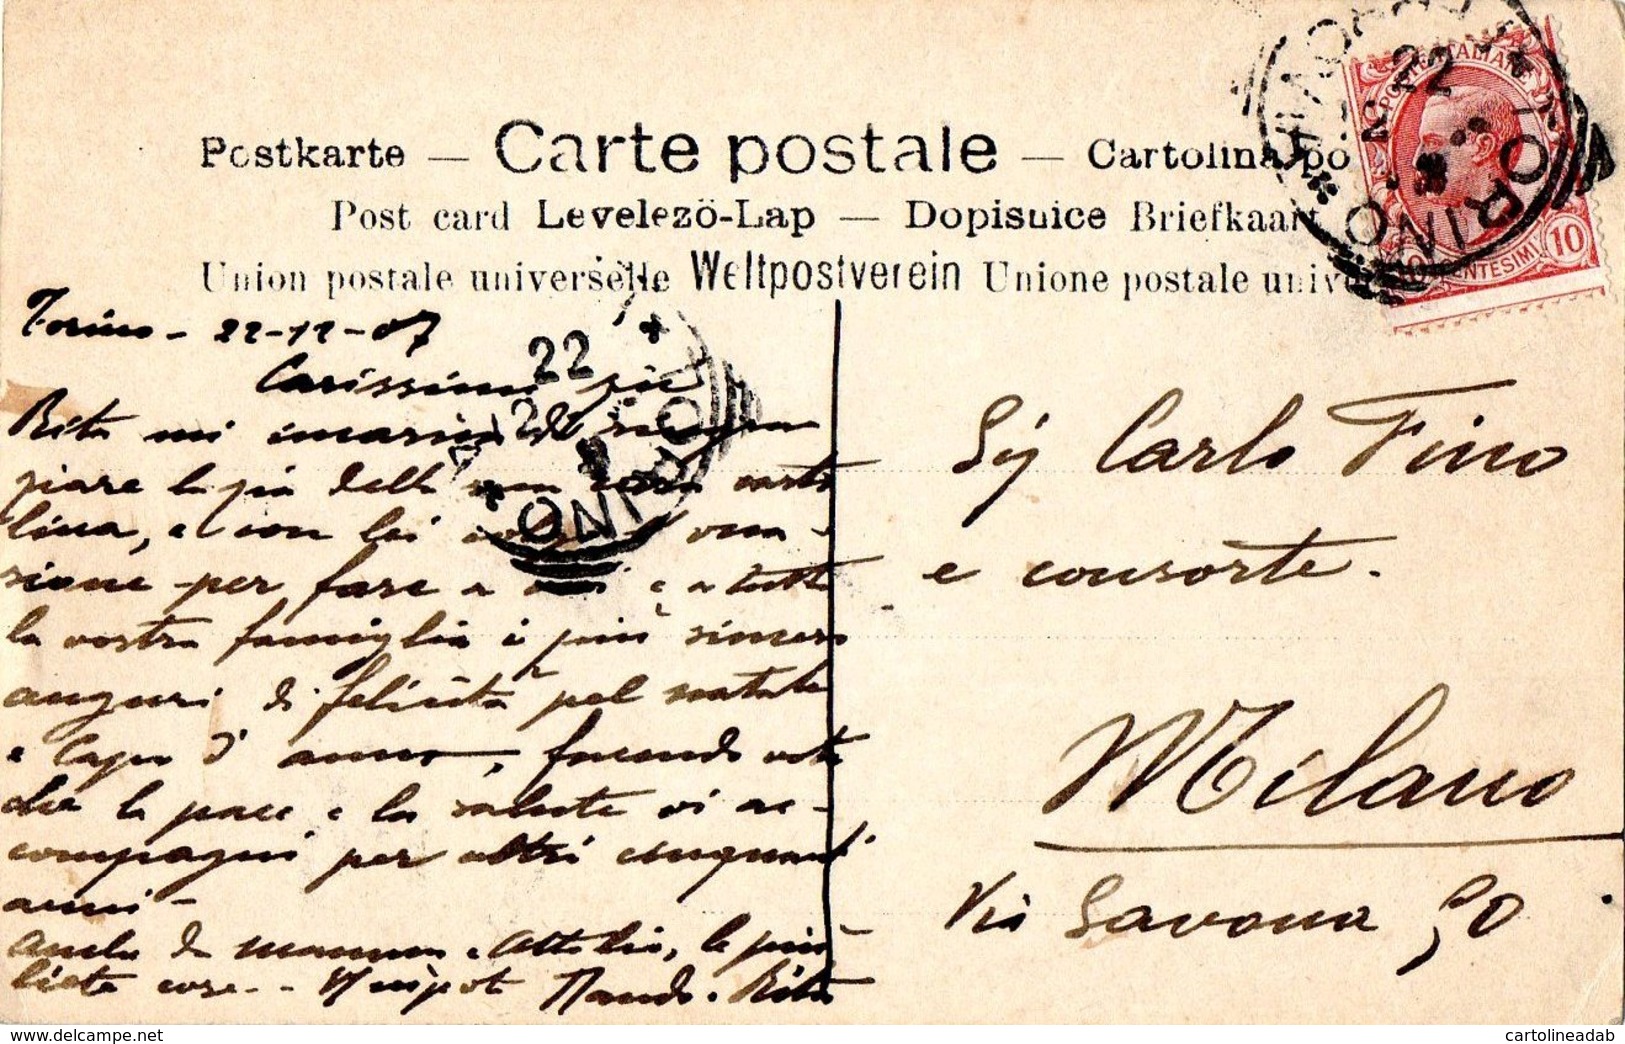 Postkarte — Carte postale — Cartolina po
Post card Levelezö-Lap — Dopisnice Briefkaart
Union postale universelle Weltpostverein Unione postale univ
POSTE ITALIANE
10 CENTESIMI 10
22
TORINO
Torino - 22-12-07
Carissimi zii
Rita mi incarica di
ziare la zia della carto
lina, e con lei occa-
sione per fare a voi e a tutta
la vostra famiglia i più sinceri
auguri di felicità pel natale
e Capo d'anno, facendo voti
che la pace e la salute vi ac-
compagni per altri cinquant'
anni -
Anche da mamma e Attilio, le più
liete cose - - Nando. Rita
22
TORINO
Sig Carlo Fino
e consorte.
Milano
Via Savona 50
www.delcampe.net
cartolineadab